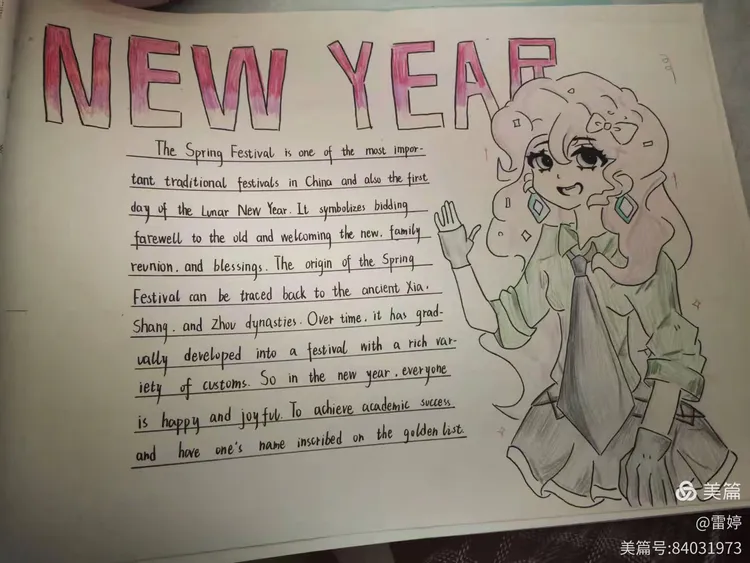 NEW YEAR
The Spring Festival is one of the most impor-
tant traditional festivals in China and also the first
day of the Lunar New Year. It symbolizes bidding
farewell to the old and welcoming the new, family
reunion, and blessings. The origin of the Spring
Festival can be traced back to the ancient Xia,
Shang, and Zhou dynasties. Over time, it has grad-
ually developed into a festival with a rich var-
iety of customs. So in the new year, everyone
is happy and joyful. To achieve academic success
and have one's name inscribed on the golden list.
美篇
@雷婷
美篇号:84031973